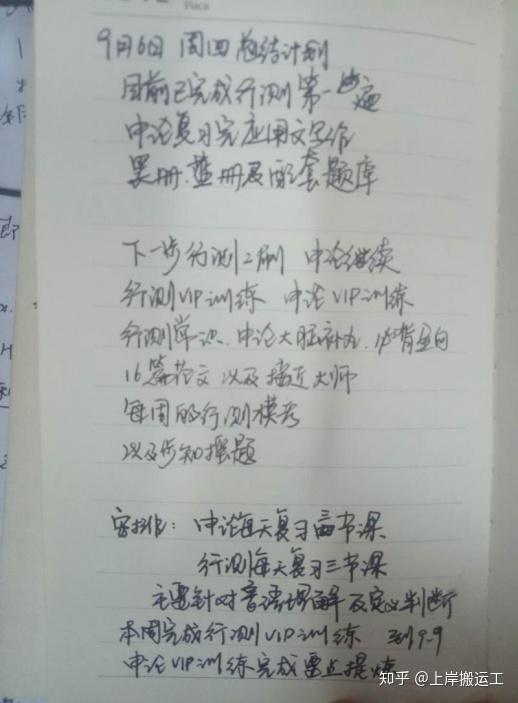 Place
9月6日 周四总结计划
目前已完成行测第一遍
申论复习完应用文写作
黑册.蓝册及配套题库
下一步行测二刷 申论继续
行测VIP训练 申论VIP训练
行测常识.申论大脑补丸.必背金句
16篇范文以及接近大师
每周的行测模考
以及步知摇题
安排: 申论每天复习两节课
行测每天复习三节课
主要针对言语理解及定义判断
本周完成行测VIP训练 到9-9
申论VIP训练完成要点提炼
知乎 @上岸搬运工